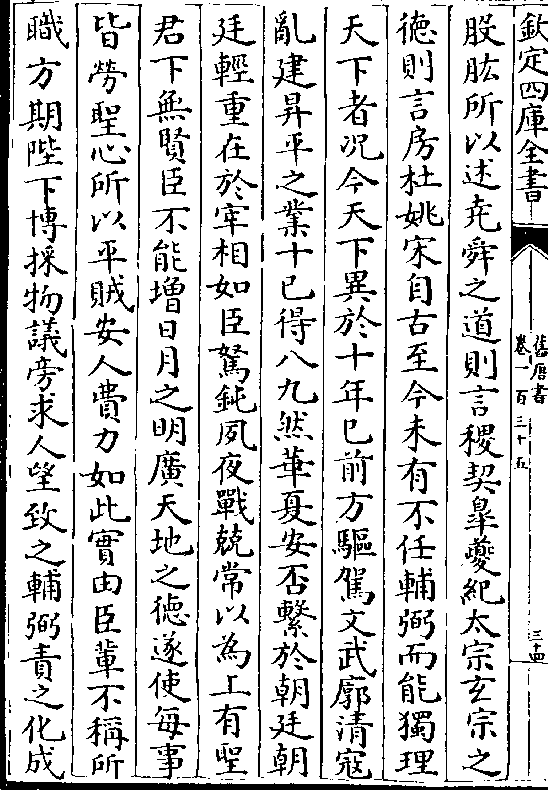 欽定四庫全書
舊唐書
卷一百三十五
三十四
股肱所以述堯舜之道則言稷契臯夔紀太宗玄宗之
徳則言房杜姚宋自古至今未有不任輔弼而能獨理
天下者况今天下異於十年已前方驅駕文武廓清寇
亂建昇平之業十已得八九然華夏安否繫於朝廷朝
廷輕重在於宰相如臣駑鈍夙夜戰兢常以為上有聖
君下無賢臣不能增日月之明廣天地之徳遂使每事
皆勞聖心所以平賊安人費力如此實由臣輩不稱所
職方期陛下博採物議旁求人望致之輔弼責之化成